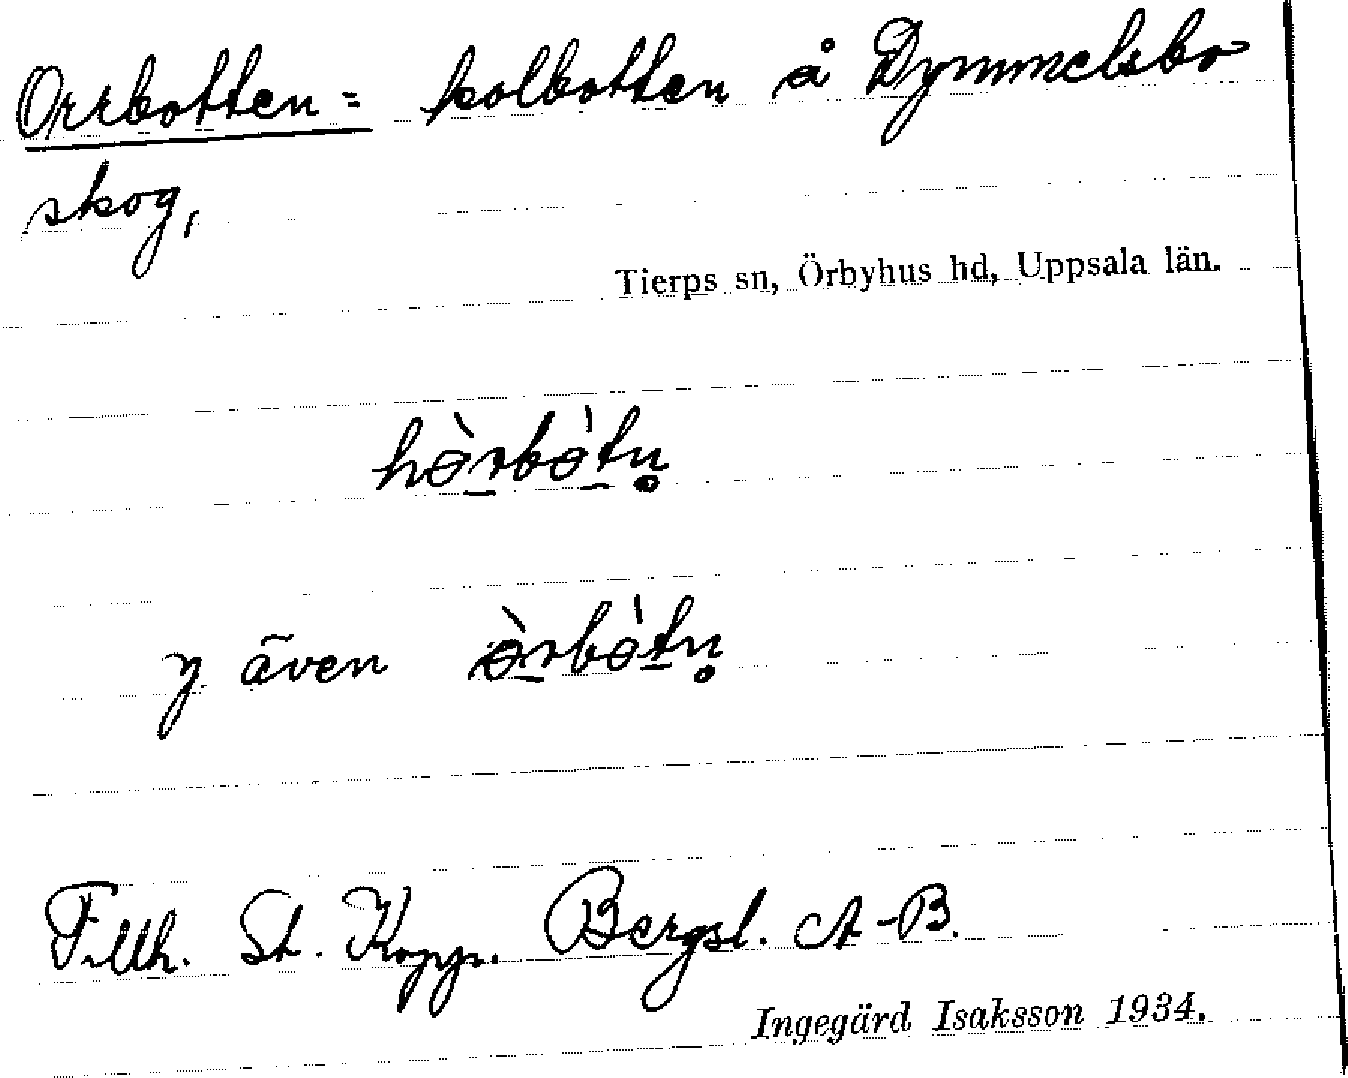 Orrbotten = kolbotten å Dymmelsbo
skog,
Tierps sn, Örbyhus hd, Uppsala län.
hɵ̀rbɵ̀tn̥
y även ɵ̀rbɵ̀tn̥
Tillh. St. Kopp. Bergsl. A-B.
Ingegärd Isaksson 1934.